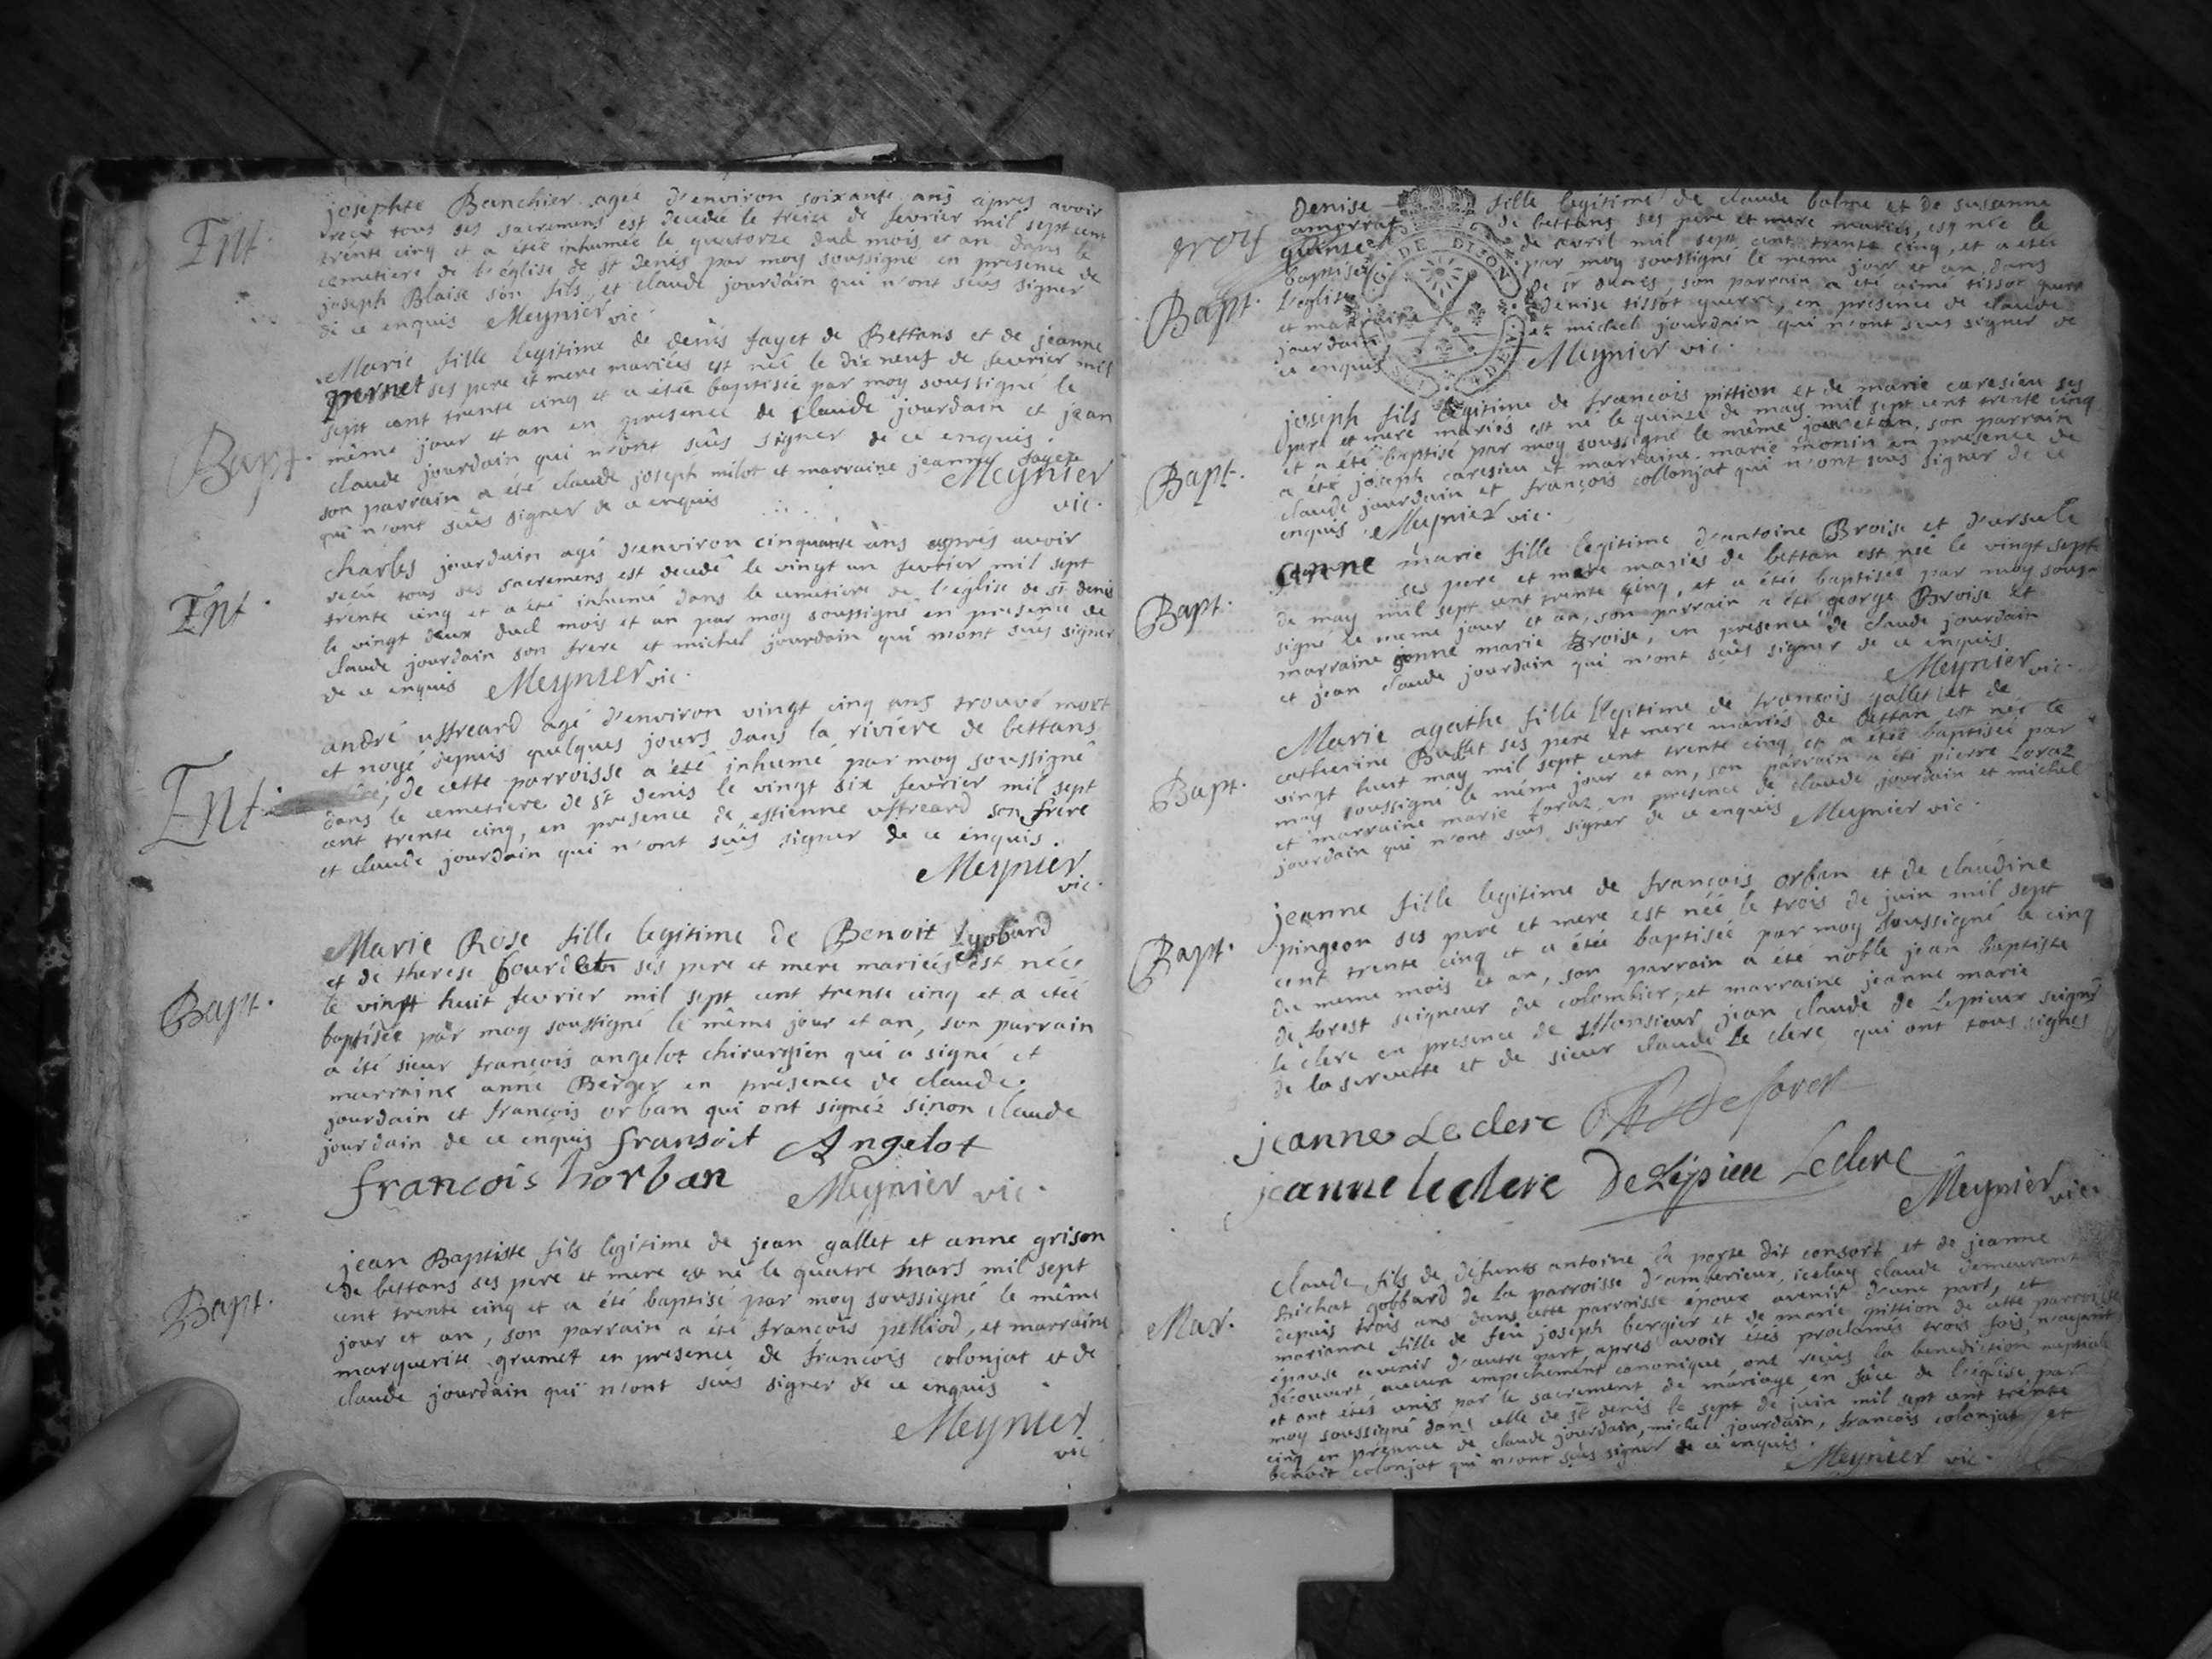 Ent.
josephte Banchier agee d'environ soixante ans apres avoir
recu tous ses sacremens est decedée le treize de fevrier mil sept cent
trente cinq et a étée inhumée le quatorze dud mois et an dans le
cemetiere de l'église de st denis par moy soussigné en presence de
joseph Blaise son fils, et claude jourdain qui n'ont sçus signer
de ce enquis Meynier vic.
Bapt.
Marie fille legitime de denis fayet de Bettans et de jeanne
pernet ses pere et mere mariées est née le dix neuf de fevrier mil
sept cent trente cinq et a étée baptisée par moy soussigné le
même jour et an en presence de claude jourdain et jean
claude jourdain qui n'ont sçus signer de ce enquis.
son parrain a été claude joseph milot et marraine jeanne fayet
qui n'ont sçus signer de ce enquis
Meynier
vic.
Ent.
charles jourdain agé d'environ cinquante ans après avoir
reçu tous ses sacremens est decedé le vingt un fevrier mil sept
trente cinq et a été inhumé dans le cemetiere de l'église de st denis
le vingt deux dud mois et an par moy soussigné en presence de
claude jourdain son frere et michel jourdain qui n'ont sçus signer
de ce enquis Meynier vic.
Ent.
andré uffreard agé d'environ vingt cinq ans trouvé mort
et noyé depuis quelques jours dans la rivière de bettans
de cette parroisse a été inhumé par moy soussigné
dans le cemetiere de st denis le vingt six fevrier mil sept
cent trente cinq, en presence de estienne uffreard son frere
et claude jourdain qui n'ont sçus signer de ce enquis.
Meynier
vic.
Bapt.
Marie Rose fille legitime de Benoit Lyobard
et de therese bourdetn ses pere et mere mariées est née
le vingt huit fevrier mil sept cent trente cinq et a étée
baptisée par moy soussigné le même jour et an, son parrain
a été sieur françois angelot chirurgien qui a signé et
marraine anne Berger en présence de claude
jourdain et françois orban qui ont signéz sinon claude
jourdain de ce enquis fransoit Angelot
francois horban Meynier vic.
Bapt.
jean Baptiste fils legitime de jean gallet et anne grison
de bettans ses pere et mere est né le quatre mars mil sept
cent trente cinq et a été baptisé par moy soussigné le même
jour et an, son parrain a été françois pelliod, et marraine
marguerite grumet en presence de françois colonjat et de
claude jourdain qui n'ont sçus signer de ce enquis.
Meynier
vic
Bapt.
Denise fille legitime de claude balme et de susanne
amorrat de bettans ses pere et mere mariés, est née le
quinse de avril mil sept cent trente cinq, et a étée
baptisée par moy soussigné le meme jour et an dans
l'eglise de st denis, son parrain a été aimé tissot guerre
et marraine denise tissot guerre, en presence de claude
jourdain et michel jourdain qui n'ont sçus signer de
ce enquis Meynier vic.
DE DIJON
Bapt.
joseph fils legitime de françois pittion et de marie caresieu ses
pere et mere mariés est né le quinse de may mil sept cent trente cinq
et a été baptisé par moy soussigné le même jour et an, son parrain
a été joseph caresieu et marraine marie monin en presence de
claude jourdain et françois collonjat qui n'ont sçus signer de ce
enquis. Meynier vic.
Bapt.
anne marie fille legitime d'antoine Broise et d'ursule
ses pere et mere mariés de bettan est née le vingt sept
de may mil sept cent trente cinq, et a étée baptisée par moy sous-
signé le meme jour et an, son parrain a été george Broise et
marraine jeanne marie Broise, en presence de claude jourdain
et jean claude jourdain qui n'ont sçus signer de ce enquis
Meynier vic.
Bapt.
Marie agathe fille Legitime de francois gallet et de
catherine Buffet ses pere et mere mariés de bettan est née le
vingt huit may mil sept cent trente cinq et a étée baptisée par
moy soussigné le même jour et an, son parrain a été pierre Loraz
et marraine marie Loraz en presence de claude jourdain et michel
jourdain qui n'ont sçus signer de ce enquis Meynier vic.
Bapt.
jeanne fille legitime de françois orban et de claudine
pingeon ses pere et mere est née le trois de juin mil sept
cent trente cinq et a étée baptisée par moy soussigné le cinq
du meme mois et an, son parrain a été noble jean Baptiste
de forest seigneur du colombier, et marraine jeanne marie
le clerc en presence de Monsieur jean claude de Lepieux seignr
de la servette et de sieur claude Le clerc qui ont tous signes
jeanne Leclerc De forest
jeanne leclerc De Lipieu Leclerc
Meynier vic.
Mar.
claude fils de défunts antoine la porte dit consort et de jeanne
gobbard de la parroisse d'amberieux, iceluy claude demeurant
depuis trois ans dans cette parroisse époux avenir d'une part, et
marianne fille de feu joseph bergier et de marie pittion de cette parroisse
épouse avenir d'autre part apres avoir étés proclamés trois fois, n'ayant
découvert aucun empechement canonique, ont reçus la benediction nuptiale
et ont étés unis par le sacrement de mariage en face de l'eglise par
moy soussigné dans celle de st denis le sept de juin mil sept cent trente
cinq en presence de claude jourdain, michel jourdain, françois colonjat et
benoit colonjat qui n'ont sçus signer de ce enquis.
Meynier vic.